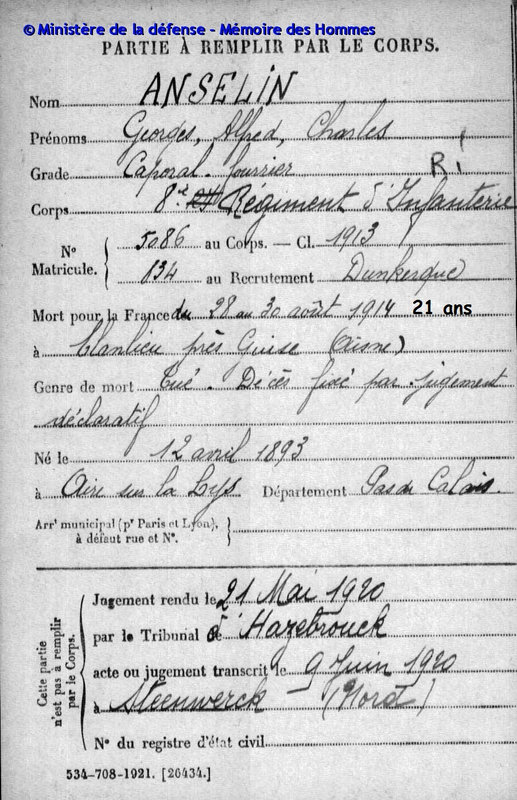 © Ministère de la défense - Mémoire des Hommes
PARTIE À REMPLIR PAR LE CORPS.
Nom ANSELIN
Prénoms Georges, Alfred, Charles
Grade Caporal-fourrier R i
Corps 8e Régiment d'Infanterie
N° Matricule. { 5086 au Corps. — Cl. 1913
134 au Recrutement Dunkerque
Mort pour la France du 28 au 30 août 1914 21 ans
à Clanlieu près Guise (Aisne)
Genre de mort Tué - Décès fixé par jugement
déclaratif
Né le 12 avril 1893
à Aire sur la Lys Département Pas de Calais.
Arrt municipal (pr Paris et Lyon),
à défaut rue et N°. }
Cette partie n'est pas à remplir par le Corps.
Jugement rendu le 21 Mai 1920
par le Tribunal d'Hazebrouck
acte ou jugement transcrit le 9 Juin 1920
à Steenwerck (Nord)
N° du registre d'état civil
534-708-1921. [26434.]